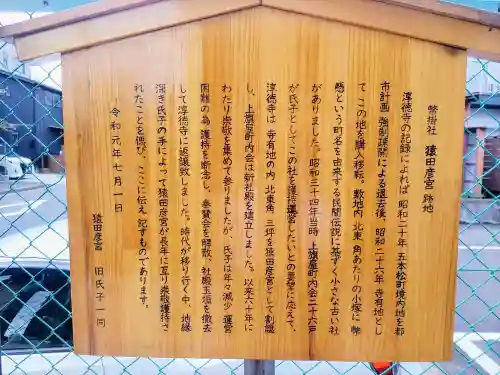 幣掛社 猿田彦宮 跡地
淳徳寺の記録によれば 昭和二十年 五本松町境内地を都
市計画 強制疎開による退去後、昭和二十六年 寺有地とし
て この地を購入移転、敷地内 北東 角あたりの小塚に 幣
懸という町名を由来する民間伝説に基づく小さな古い社
がありました。昭和三十四年当時 上旗屋町内会二十六戸
が氏子としてこの社を護持運営したいとの要望に応えて、
淳徳寺は 寺有地の内 北東角、三坪を猿田彦宮として割譲
し、上旗屋町内会は新社殿を建立しました。以来六十年に
わたり 崇敬を集めて参りましたが、氏子は年々減少 運営
困難の為 護持を断念し、奉賛会を解散、社殿玉垣を撤去
して淳徳寺に返譲致しました。時代が移り行く中、地縁
深き氏子の手によって猿田彦宮が長年に亙り崇敬護持さ
れたことを偲び、ここに伝え 記すものであります。
令和元年七月一日
猿田彦宮 旧氏子一同